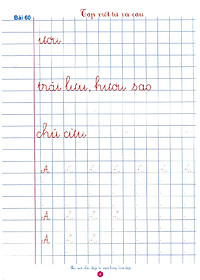 Tập viết từ và câu
Bài 60
ươu
trái lựu, hươu sao
chú cừu
A
A
A